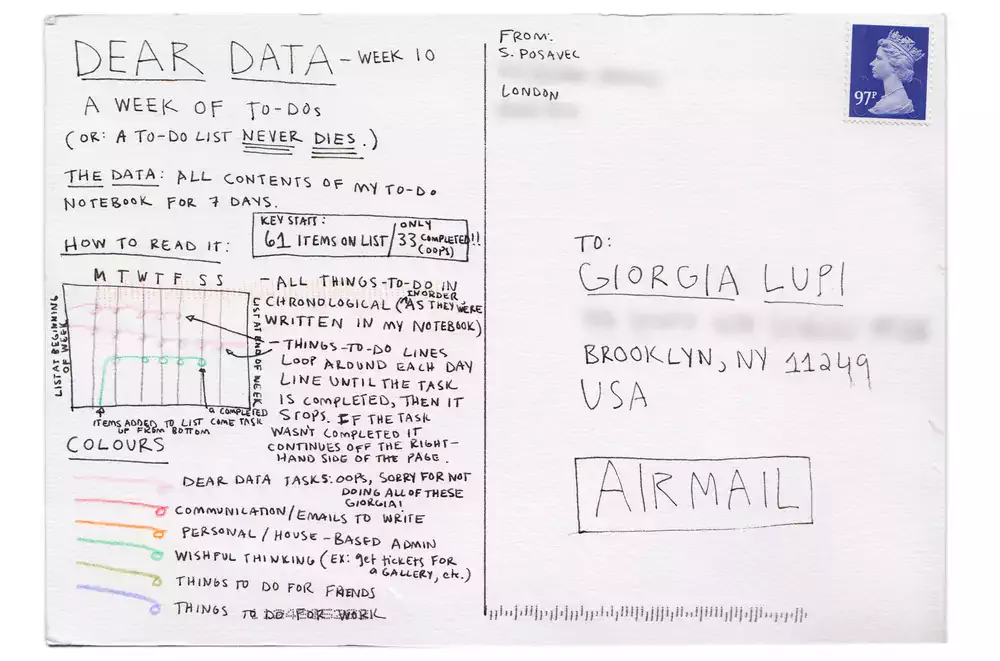 DEAR DATA - WEEK 10
A WEEK OF TO-DOs
(OR: A TO-DO LIST NEVER DIES.)
THE DATA: ALL CONTENTS OF MY TO-DO
NOTEBOOK FOR 7 DAYS.
KEY STATS:
61 ITEMS ON LIST / ONLY
33 COMPLETED!!
(OOPS)
HOW TO READ IT:
M T W T F S S
LIST AT BEGINNING
OF WEEK
LIST AT END OF WEEK
ITEMS ADDED TO LIST
UP FROM BOTTOM
a COMPLETED
TASK
- ALL THINGS-TO-DO IN
CHRONOLOGICAL (AS THEY WERE
IN ORDER
WRITTEN IN MY NOTEBOOK)
- THINGS-TO-DO LINES
LOOP AROUND EACH DAY
LINE UNTIL THE TASK
IS COMPLETED, THEN IT
STOPS. IF THE TASK
WASN'T COMPLETED IT
CONTINUES OFF THE RIGHT-
HAND SIDE OF THE PAGE.
COLOURS
DEAR DATA TASKS: OOPS, SORRY FOR NOT
DOING ALL OF THESE
GIORGIA!
COMMUNICATION/EMAILS TO WRITE
PERSONAL/HOUSE-BASED ADMIN
WISHFUL THINKING (EX: get tickets FOR
a GALLERY, etc.)
THINGS TO DO FOR FRIENDS
THINGS TO DO FOR WORK
FROM:
S. POSAVEC
LONDON
97P
TO:
GIORGIA LUPI
BROOKLYN, NY 11249
USA
AIRMAIL